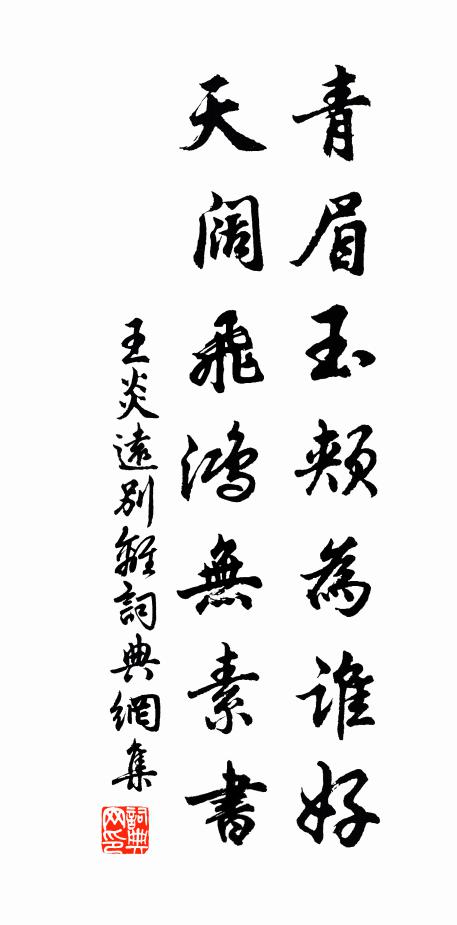 青眉玉頰為誰好
天闊飛鴻無素書
王炎遠別離詞典網集
詞典網印